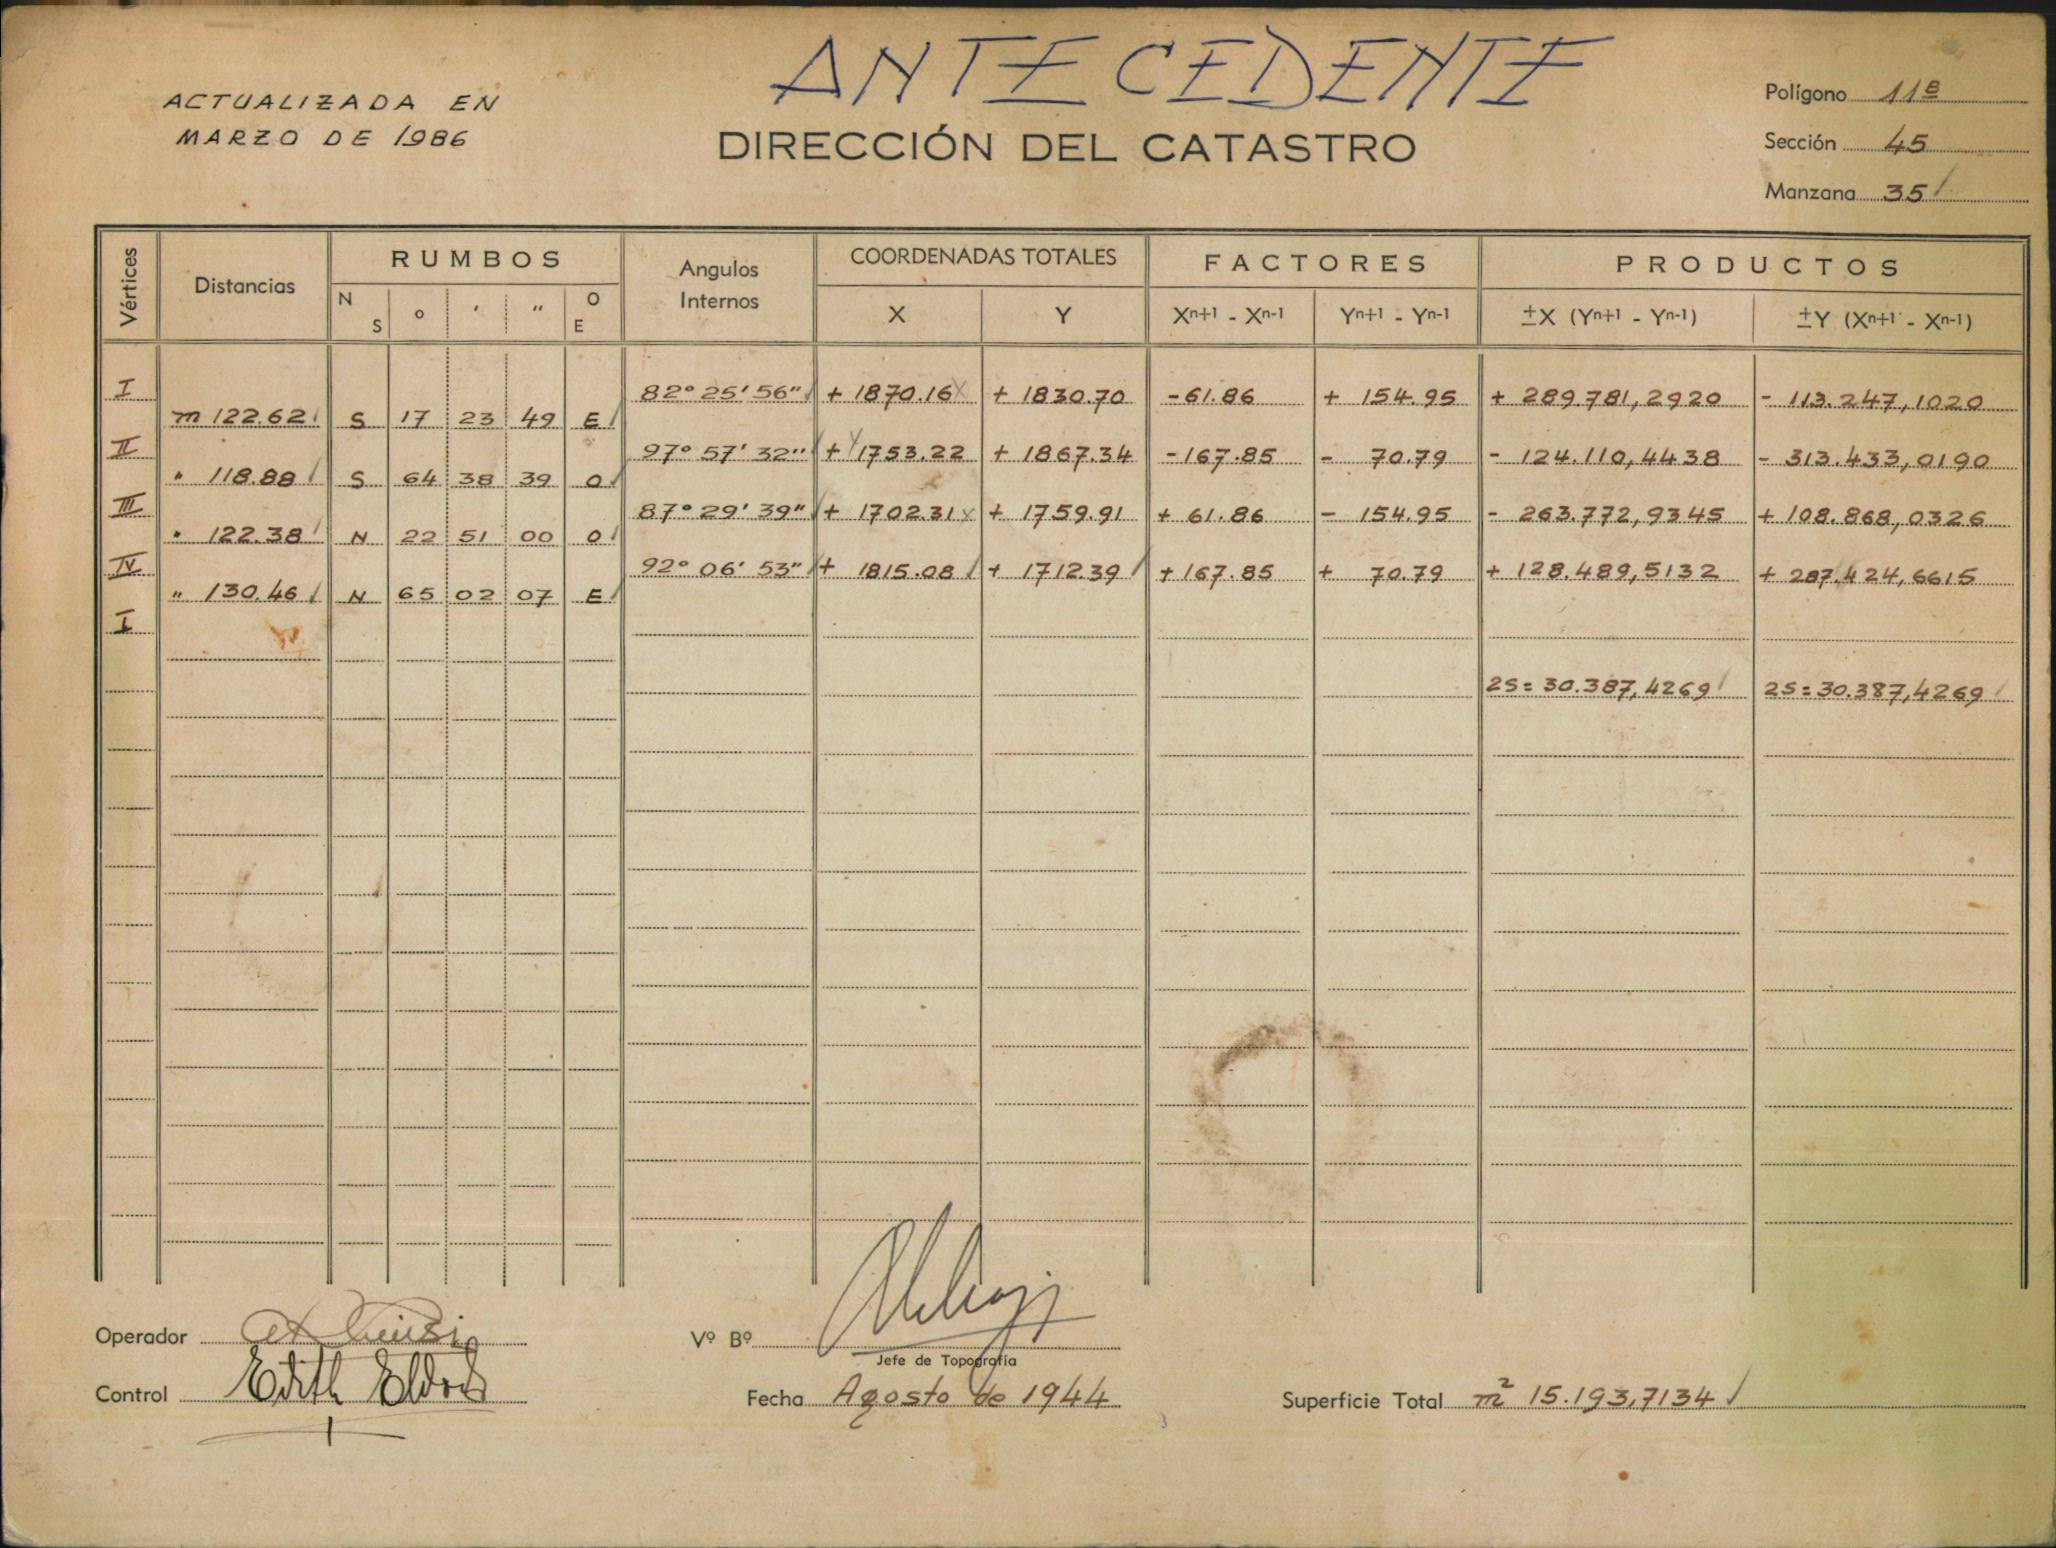 ANTECEDENTE
ACTUALIZADA EN
MARZO DE 1986
DIRECCIÓN DEL CATASTRO
Polígono 11ª
Sección 45
Manzana 35
Vértices Distancias RUMBOS Angulos Internos COORDENADAS TOTALES FACTORES PRODUCTOS
N S ° ' " O E X Y Xn+1 - Xn-1 Yn+1 - Yn-1 ±X (Yn+1 - Yn-1) ±Y (Xn+1 - Xn-1)
I 82° 25' 56" + 1870.16 + 1830.70 -61.86 + 154.95 + 289.781,2920 - 113.247,1020
m 122.62 S 17 23 49 E
II 97° 57' 32" + 1753.22 + 1867.34 -167.85 - 70.79 - 124.110,4438 - 313.433,0190
" 118.88 S 64 38 39 O
III 87° 29' 39" + 1702.31 + 1759.91 + 61.86 - 154.95 - 263.772,9345 + 108.868,0326
" 122.38 N 22 51 00 O
IV 92° 06' 53" + 1815.08 + 1712.39 + 167.85 + 70.79 + 128.489,5132 + 287.424,6615
" 130.46 N 65 02 07 E
I
2S = 30.387,4269 2S = 30.387,4269
Operador
Vº Bº
Jefe de Topografía
Control Edith
Fecha Agosto de 1944
Superficie Total m² 15.193,7134